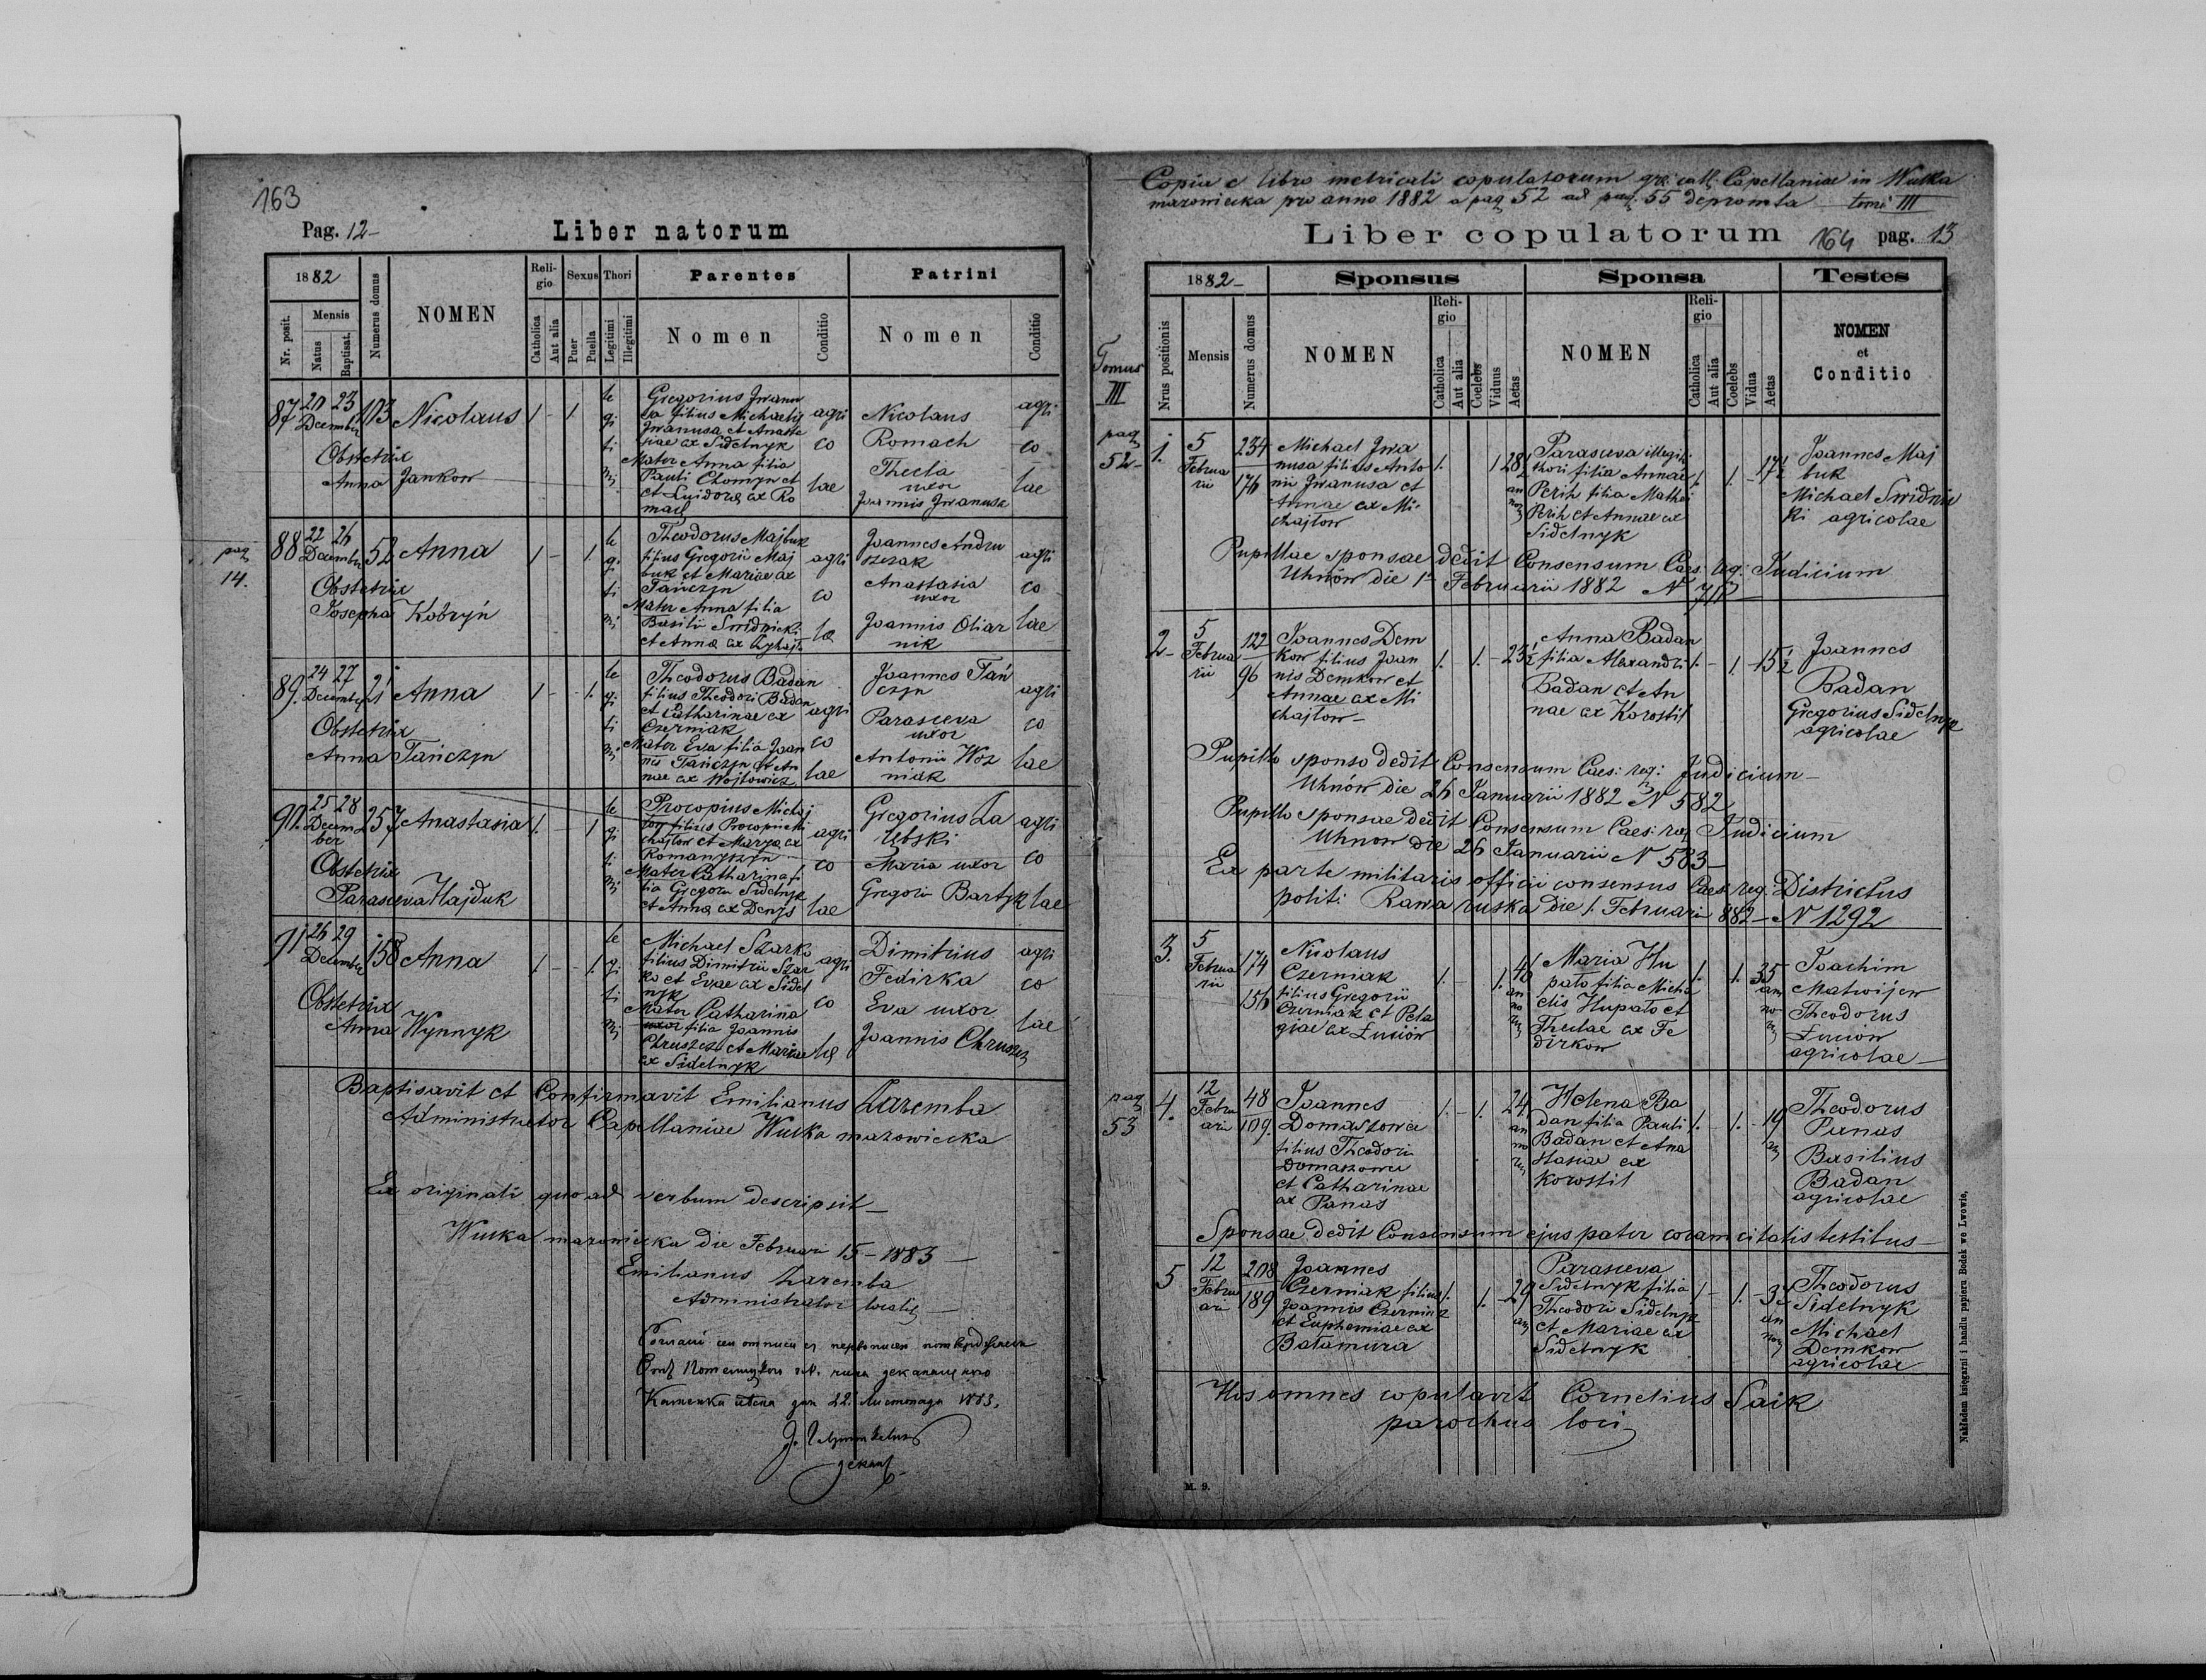 163
Pag. 12
Liber natorum
1882
Nr. posit.
Mensis
Natus
Baptisat.
Numerus domus
NOMEN
Religio
Catholica
Aut alia
Sexus
Puer
Puella
Thori
Legitimi
Illegitimi
Parentes
Nomen
Conditio
Patrini
Nomen
Conditio
87
20 23
Decembr
103
Nicolaus
1 - 1.
legitimi
Gregorius Iwanu
sa filius Michaelis
Iwanusa et Anasta
siae ex Sidelnyk
Mater Anna filia
Pauli Chomyn et
ex Ro
mach
agricolae
Nicolaus
Romach
Thecla
uxor
Joannis Iwanusa
agricolae
Obstetrix
Anna Jankow
pag
14.
88
22 26
Decembr
52
Anna
1 - 1.
legitimi
Theodorus Majbuk
filius Gregorii Maj
buk et Mariae ex
Tańczyn
Mater Anna filia
Basilii Swidnicki
et Annae ex
agricolae
Joannes Andru
szczak
Anastasia
uxor
Joannis Oliar
nik
agricolae
Obstetrix
Josepha Kobryń
89.
24 27
Decembr
21
Anna
1 - 1.
legitimi
Theodorus Badan
filius Theodori Badan
et Catharinae ex
Czerniak
Mater Eva filia Joan
nis Tańczyn et An
nae ex Wojtowicz
agricolae
Joannes Tań
czyn
Parasceva
uxor
Antonii Woz
niak
agricolae
Obstetrix
Anna Tańczyn
90.
25 28
Decem
ber
257
Anastasia
1. - 1
legitimi
Procopius Michaj
low filius Procopii Mi
chajlow et Marya ex
Romanyszyn
Mater Catharina fi
lia Gregorii Sidelnyk
et Anna ex Denys
agricolae
Gregorius Za
lebski
Maria uxor
Gregorii Bartyk
agricolae
Obstetrix
Parasceva Hajduk
91
26 29
Decembr
158
Anna
1. - 1.
legitimi
Michael Szarko
filius Dimitrii Szar
ko et Evae ex Sidel
nyk
Mater Catharina
uxor filia Joannis
Chruszcz et Mariae
ex Sidelnyk
agricolae
Dimitrius
Fedirka
Eva uxor
Joannis Chruszcz
agricolae
Obstetrix
Anna Wynnyk
Baptisavit et Confirmavit Emilianus Zaremba
Administrator Capellaniae Wulka mazowiecka
Ex originali quoad verbum descripsit
Wulka mazowiecka die Februari 15 - 1883
Emilianus Zaremba
Administrator localis
22. Листопада 1883.
декан
Copia e libro metricali copulatorum gr. cath. Capellaniae in Wulka
mazowiecka pro anno 1882 a pag 52 ad pag. 55 deprompta tomi III
Liber copulatorum 164 pag. 13
1882
Nrus positionis
Mensis
Numerus domus
Sponsus
NOMEN
Religio
Catholica
Aut alia
Coelebs
Viduus
Aetas
Sponsa
NOMEN
Religio
Catholica
Aut alia
Coelebs
Vidua
Aetas
Testes
NOMEN
et
Conditio
Tomus
III
pag
52
1.
5
Februa
rii
234
176
Michael Iwa
nusa filius Anto
nii Iwanusa et
Annae ex Mi
chajlow
1. 1 28½
annor
Parasceva illegit:
thori filia Annae
Perih filia Mathei
Perih et Annae ex
Sidelnyk
1. 1. - 17½
Joannes Maj
buk
Michael Swidnic
ki agricolae
Pupillae sponsae dedit Consensum Caes: reg: Judicium
Uhnów die 1 Februarii 1882 N 711
2
5
Februa
rii
122
96
Joannes Dem
kow filius Joan
nis Demkow et
Annae ex Mi
chajlow
1. - 1. - 23½
Anna Badan
filia Alexandri
Badan et An
nae ex Korostil
1. - 1. - 15½
Joannes
Badan
Gregorius Sidelnyk
agricolae
Pupillo sponso dedit Consensum Caes: reg: Judicium
Uhnów die 26 Januarii 1882 N 582
Pupillo sponsae dedit Consensum Caes: reg Judicium
Uhnow die 26 Januarii N 583
Ex parte militaris officii consensus Caes. reg. Districtus
politi Rawa ruska die 1. Februarii 882 - N 1292
3.
5
Februa
rii
174
156
Nicolaus
Czerniak
filius Gregorii
Czerniak et Pela
giae ex Łuciów
1. - 1. 46
annorum
Maria Hu
pato filia Micha
elis Hupato et
Theclae ex Fe
dirkow
1. 1. 35
annorum
Joachim
Matwijew
Theodorus
Łuciow
agricolae
pag
53
4.
12
Febru
arii
48
109.
Joannes
Domaszowec
filius Theodori
Domaszowec
et Catharinae
ex Panas
1. - 1. 24
annorum
Helena Ba
dan filia Pauli
Badan et Ana
stasiae ex
Korostil
1. - 1. - 19
an
Theodorus
Panas
Basilius
Badan
agricolae
Sponsae dedit Consensum ejus pater coram citatis testibus
5
12
Febru
arii
208
189
Joannes
Czerniak filius
Joannis Czerniak
et Euphemiae ex
Batamura
1. 1. - 29
an
Parasceva
Sidelnyk filia
Theodori Sidelnyk
et Mariae ex
Sidelnyk
1 - 1. - 32
annor
Theodorus
Sidelnyk
Michael
Demkow
agricolae
Hos omnes copulavit Cornelius Saik
parochus loci
M. 9.
Nakładem księgarni i handlu papieru Bodek we Lwowie.